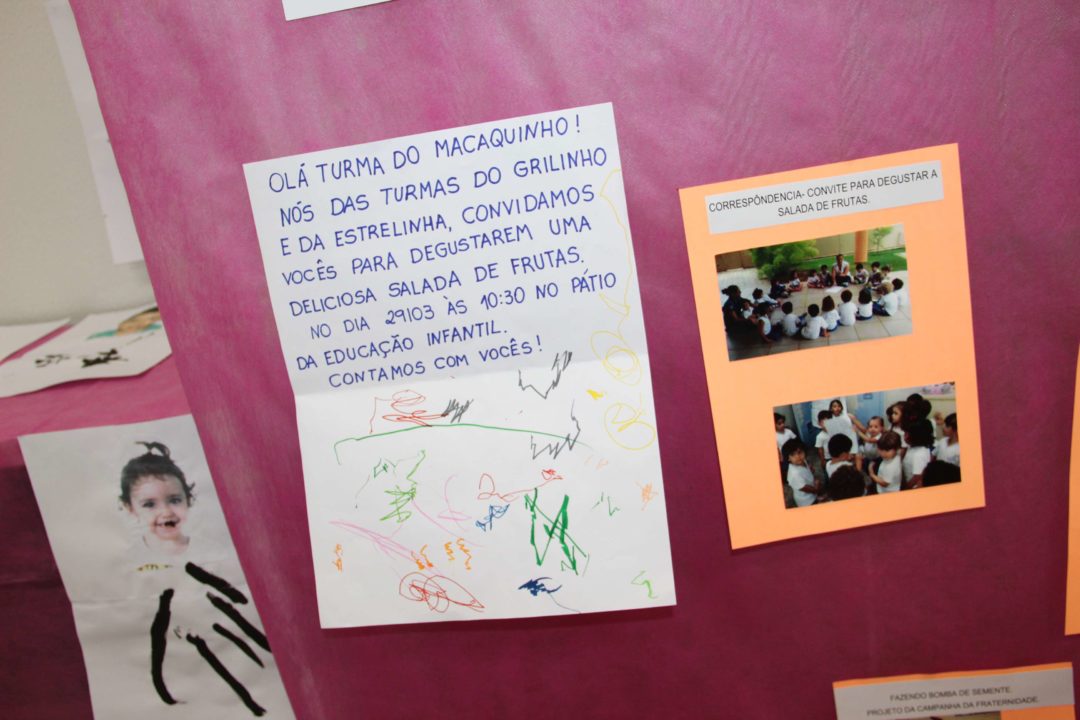 OLÁ TURMA DO MACAQUINHO!
NÓS DAS TURMAS DO GRILINHO
E DA ESTRELINHA, CONVIDAMOS
VOCÊS PARA DEGUSTAREM UMA
DELICIOSA SALADA DE FRUTAS.
NO DIA 29/03 ÀS 10:30 NO PÁTIO
DA EDUCAÇÃO INFANTIL.
CONTAMOS COM VOCÊS!
CORRESPÔNDENCIA- CONVITE PARA DEGUSTAR A
SALADA DE FRUTAS.
FAZENDO BOMBA DE SEMENTE.
PROJETO DA CAMPANHA DA FRATERNIDADE.